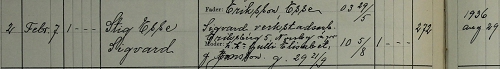 Fader: Eriksson, Eppe 03 29/5
2 Febr. 7 1 — Stig Eppe Sigvard verkstadsarb. 1936
Sigvard 272 aug 29
Moder: Gulli Elisabet, 10 5/8 1 —
f. Jansson. g. 29 21/9